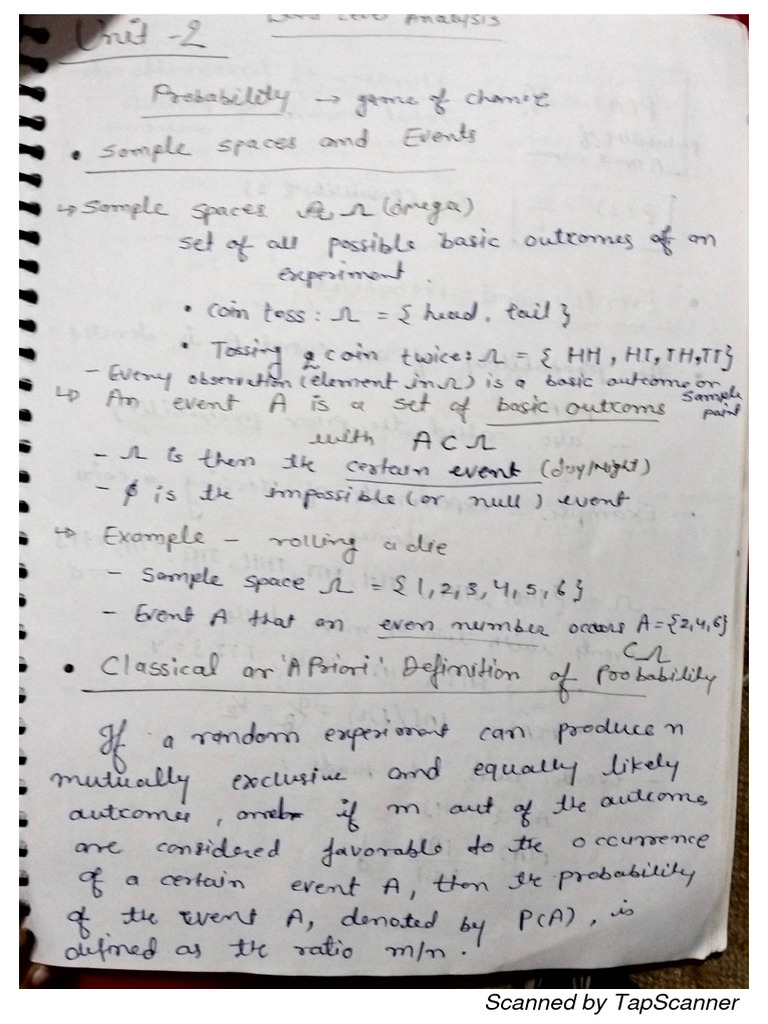 Unit - 2 Word Level Analysis
Probability → game of chance
• Sample spaces and Events
↳ Sample spaces Ω (omega)
set of all possible basic outcomes of an
experiment.
• coin toss: Ω = {head, tail}
• Tossing a coin twice: Ω = {HH, HT, TH, TT}
- Every observation (element in Ω) is a basic outcome or sample point
↳ An event A is a set of basic outcoms
with A ⊂ Ω
- Ω is then the certain event (day/night)
- ϕ is the impossible (or null) event
↳ Example - rolling a die
- Sample space Ω = {1, 2, 3, 4, 5, 6}
- Event A that an even number occurs A = {2, 4, 6}
⊂ Ω
• Classical or 'A Priori' Definition of Probability
If a random experiment can produce n
mutually exclusive and equally likely
outcomes, and if m out of the outcome
are considered favorable to the occurrence
of a certain event A, then the probability
of the event A, denoted by P(A), is
defined as the ratio m/n.
Scanned by TapScanner